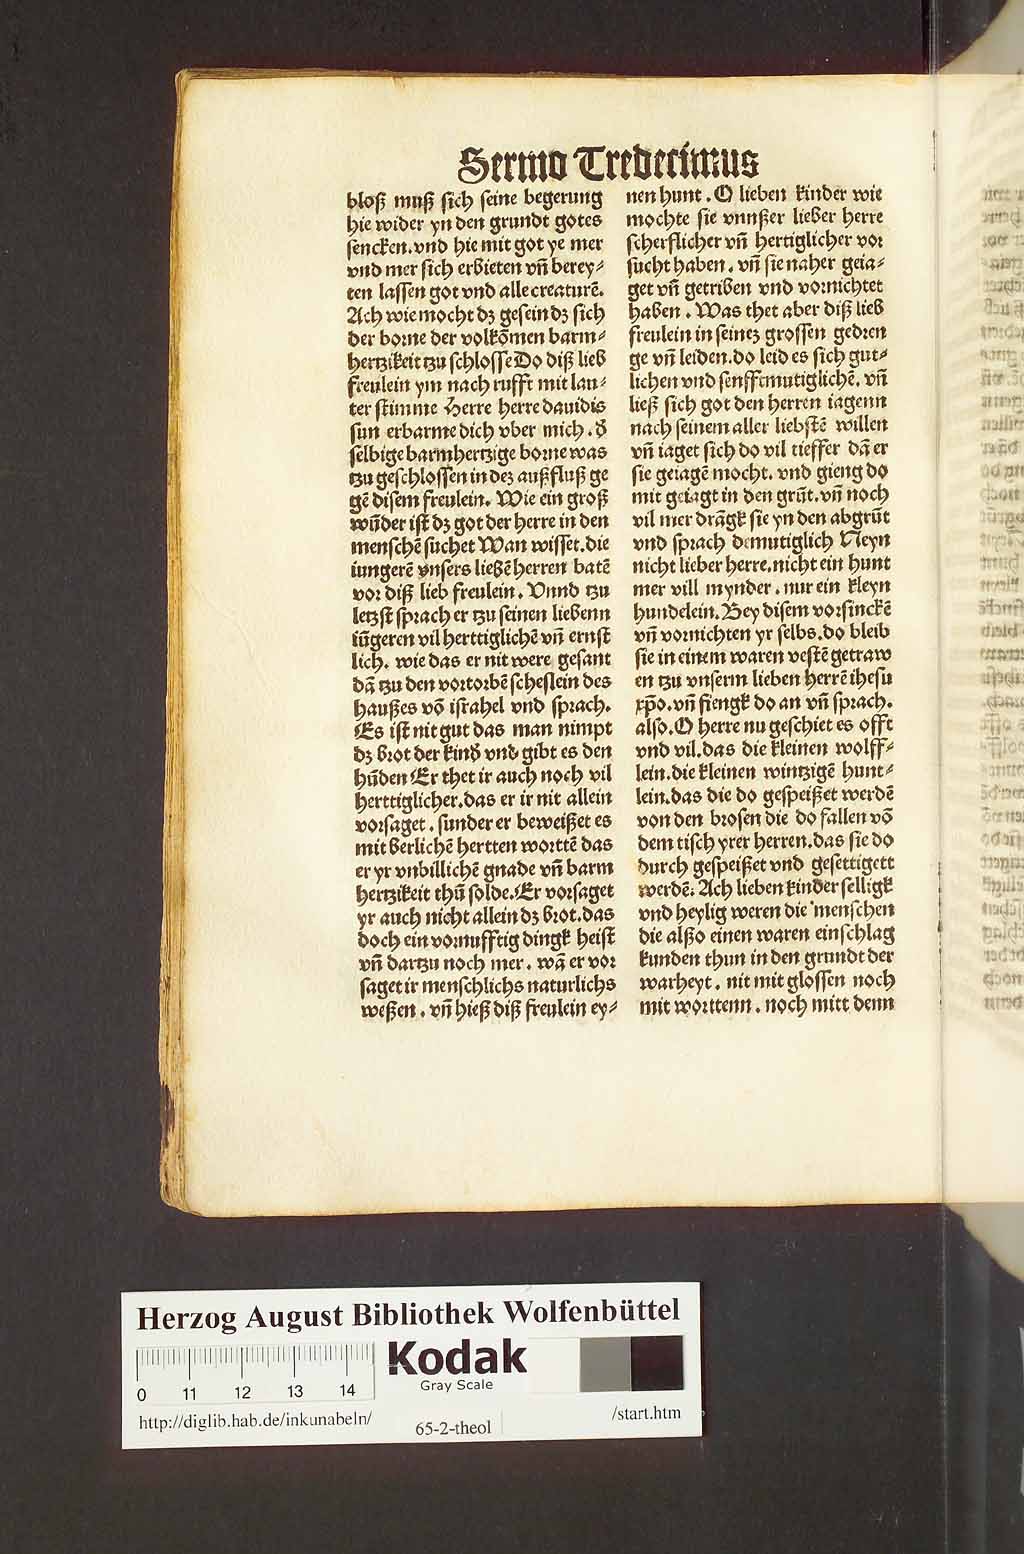 Sermo Tredecimus
bloß muß sich seine begerung
hie wider yn den grundt gotes
sencken. vnd hie mit got ye mer
vnd mer sich erbieten vn̄ berey-
ten lassen got vnd alle creaturē.
Ach wie mocht dz gesein dz sich
der borne der volkōmen barm-
hertzikeit tzu schlosse Do diß lieb
freulein ym nach rufft mit lau-
ter stimme Herre herre dauidis
sun erbarme dich vber mich. d̕
selbige barmhertzige borne was
tzu geschlossen in dez außfluß ge
gē disem freulein. Wie ein groß
wūder ist dz got der herre in den
menschē suchet Wan wisset. die
iungerē vnsers liebē herren batē
vor diß lieb freulein. Vnnd tzu
letzst sprach er tzu seinen liebenn
iūgeren vil herttiglichē vn̄ ernst
lich. wie das er nit were gesant
dā tzu den vortorbē scheflein des
haußes vō israhel vnd sprach.
Es ist nit gut das man nimpt
dz brot der kind̕ vnd gibt es den
hūden Er thet ir auch noch vil
herttiglicher. das er ir nit allein
vorsaget. sunder er beweißet es
mit berlichē hertten worttē das
er yr vnbillichē gnade vn̄ barm
hertzikeit thū solde. Er vorsaget
yr auch nicht allein dz brot. das
doch ein vornufftig dingk heist
vn̄ dartzu noch mer. wā er vor
saget ir menschlichs naturlichs
weßen. vn̄ hieß diß freulein ey-
nen hunt. O lieben kinder wie
mochte sie vnnßer lieber herre
scherflicher vn̄ hertiglicher vor
sucht haben. vn̄ sie naher geia-
get vn̄ getriben vnd vornichtet
haben. Was thet aber diß lieb
freulein in seinez grossen gedren
ge vn̄ leiden. do leid es sich gut-
lichen vnd senfftmutiglichē. vn̄
ließ sich got den herren iagenn
nach seinem aller liebstē willen
vn̄ iaget sich do vil tieffer dā er
sie geiagē mocht. vnd gieng do
mit geiagt in den grūt. vn̄ noch
vil mer drāgk sie yn den abgrūt
vnd sprach demutiglich Neyn
nicht lieber herre. nicht ein hunt
mer vill mynder. nur ein kleyn
hundelein. Bey disem vorsinckē
vn̄ vornichten yr selbs. do bleib
sie in einem waren vestē getraw
en tzu vnserm lieben herrē ihesu
xp̄o. vn̄ fiengk do an vn̄ sprach.
also. O herre nu geschiet es offt
vnd vil. das die kleinen wolff-
lein. die kleinen wintzigē hunt-
lein. das die do gespeißet werdē
von den brosen die do fallen vō
dem tisch yrer herren. das sie do
durch gespeißet vnd gesettigett
werdē: Ach lieben kinder selligk
vnd heylig weren die menschen
die alßo einen waren einschlag
kunden thun in den grundt der
warheyt. nit mit glossen noch
mit worttenn. noch mitt denn
Herzog August Bibliothek Wolfenbüttel
0 11 12 13 14
Kodak
Gray Scale
http://diglib.hab.de/inkunabeln/
65-2-theol
/start.htm